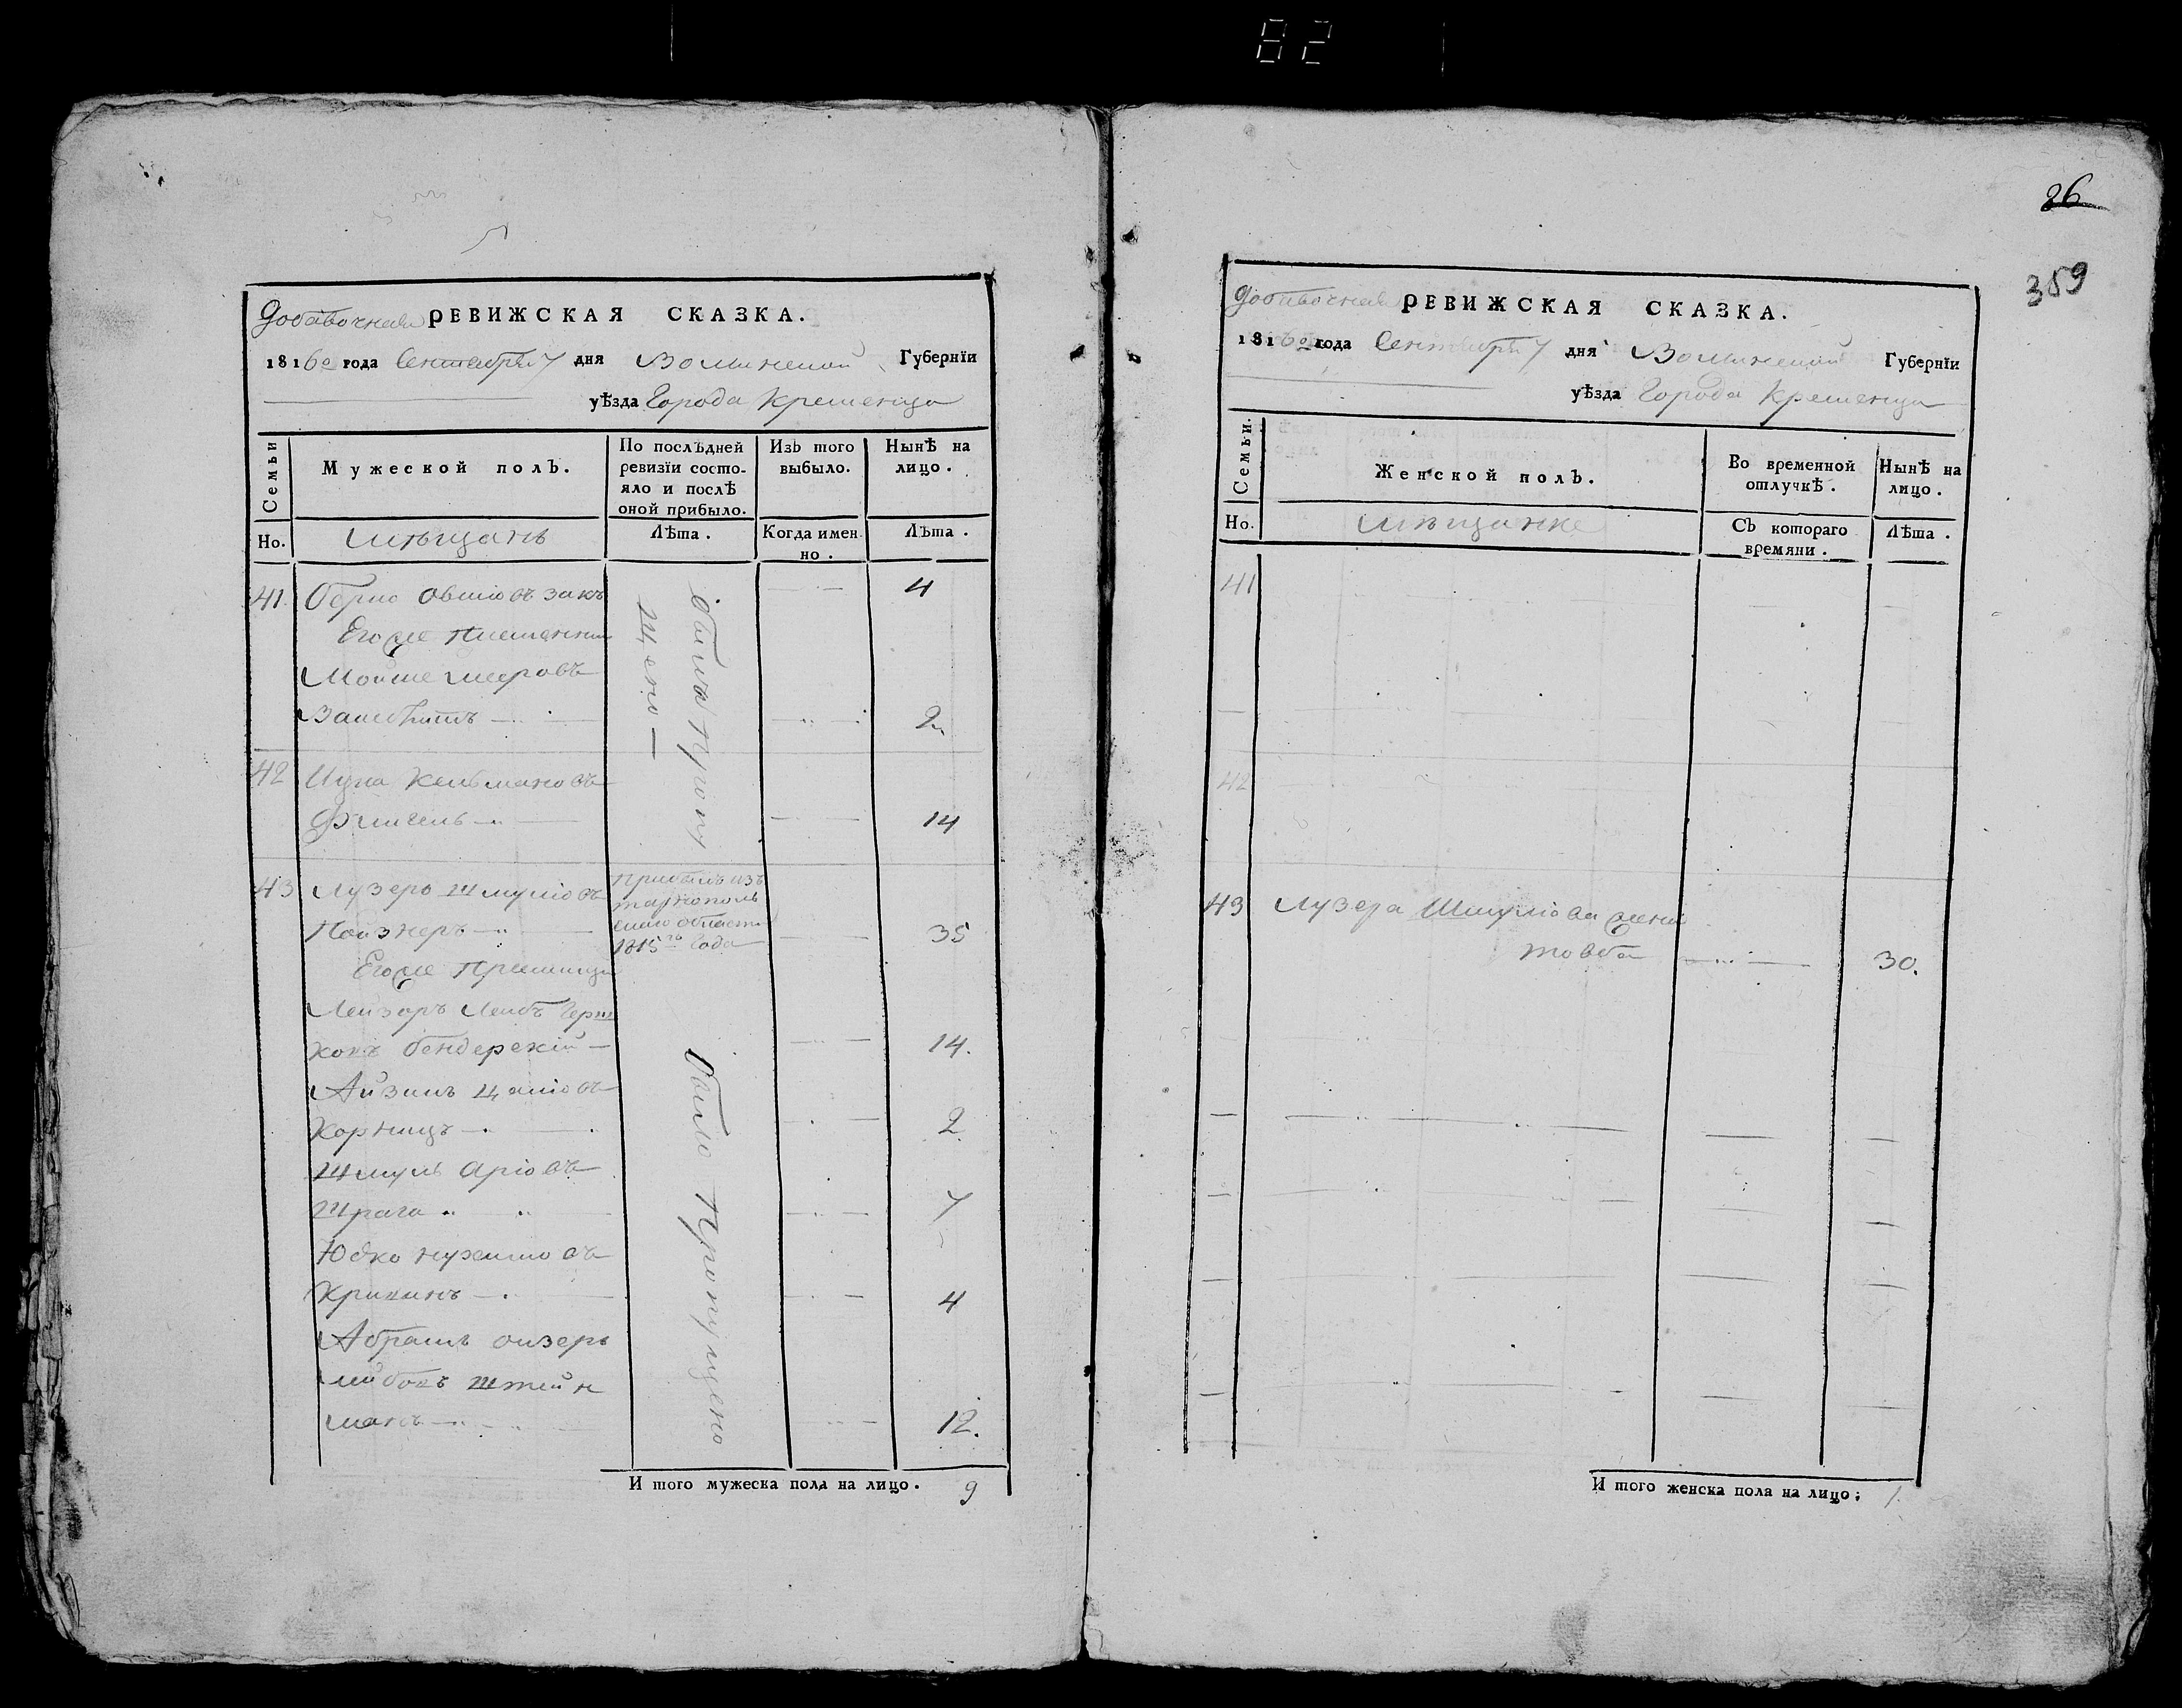 82
26
359
Добавочная РЕВИЖСКАЯ СКАЗКА.
1816го года Сентября 7 дня Волинской Губернїи
уѣзда Города Кременца
Семьи
Мужеской полъ.
По послѣдней ревизїи состо-
яло и послѣ
оной прибыло.
Изъ того выбыло.
Нынѣ на лицо.
Но.
мѣщанъ
Лѣта.
Когда имен
но.
Лѣта.
41 Берко Овшіовъ Закъ 4
Его же племянникъ
Мойше Мееровъ
2
было пропу
щено —
42 Ицка Кельмановъ
14
43 Лузеръ Шмуліовъ
Познеръ 35
Прибылъ изъ
тарнополь
ской области
1815го года
Его же Приимыши
Лейзоръ Лейбъ Герш
ковъ Бендерскій — 14.
Айзикъ Цаліовъ
Корницъ 2
Шмуль Аріовъ
Шрага 7
Юдко Нухимовъ
4
Абрамъ Оизеръ
Лейбовъ Штейн
манъ 12.
Было пропущено
И того мужеска пола на лицо. 9
Добавочная РЕВИЖСКАЯ СКАЗКА.
1816го года Сентября 7 дня Волинской Губернїи
уѣзда Города Кременца
Семьи.
Женской полъ.
Во временной отлучкѣ.
Нынѣ на лицо.
Но.
мѣщанке
Съ котораго
времяни.
Лѣта.
41
42
43 Лузера Шмуліова жена
Товба 30.
И того женска пола на лицо; 1.